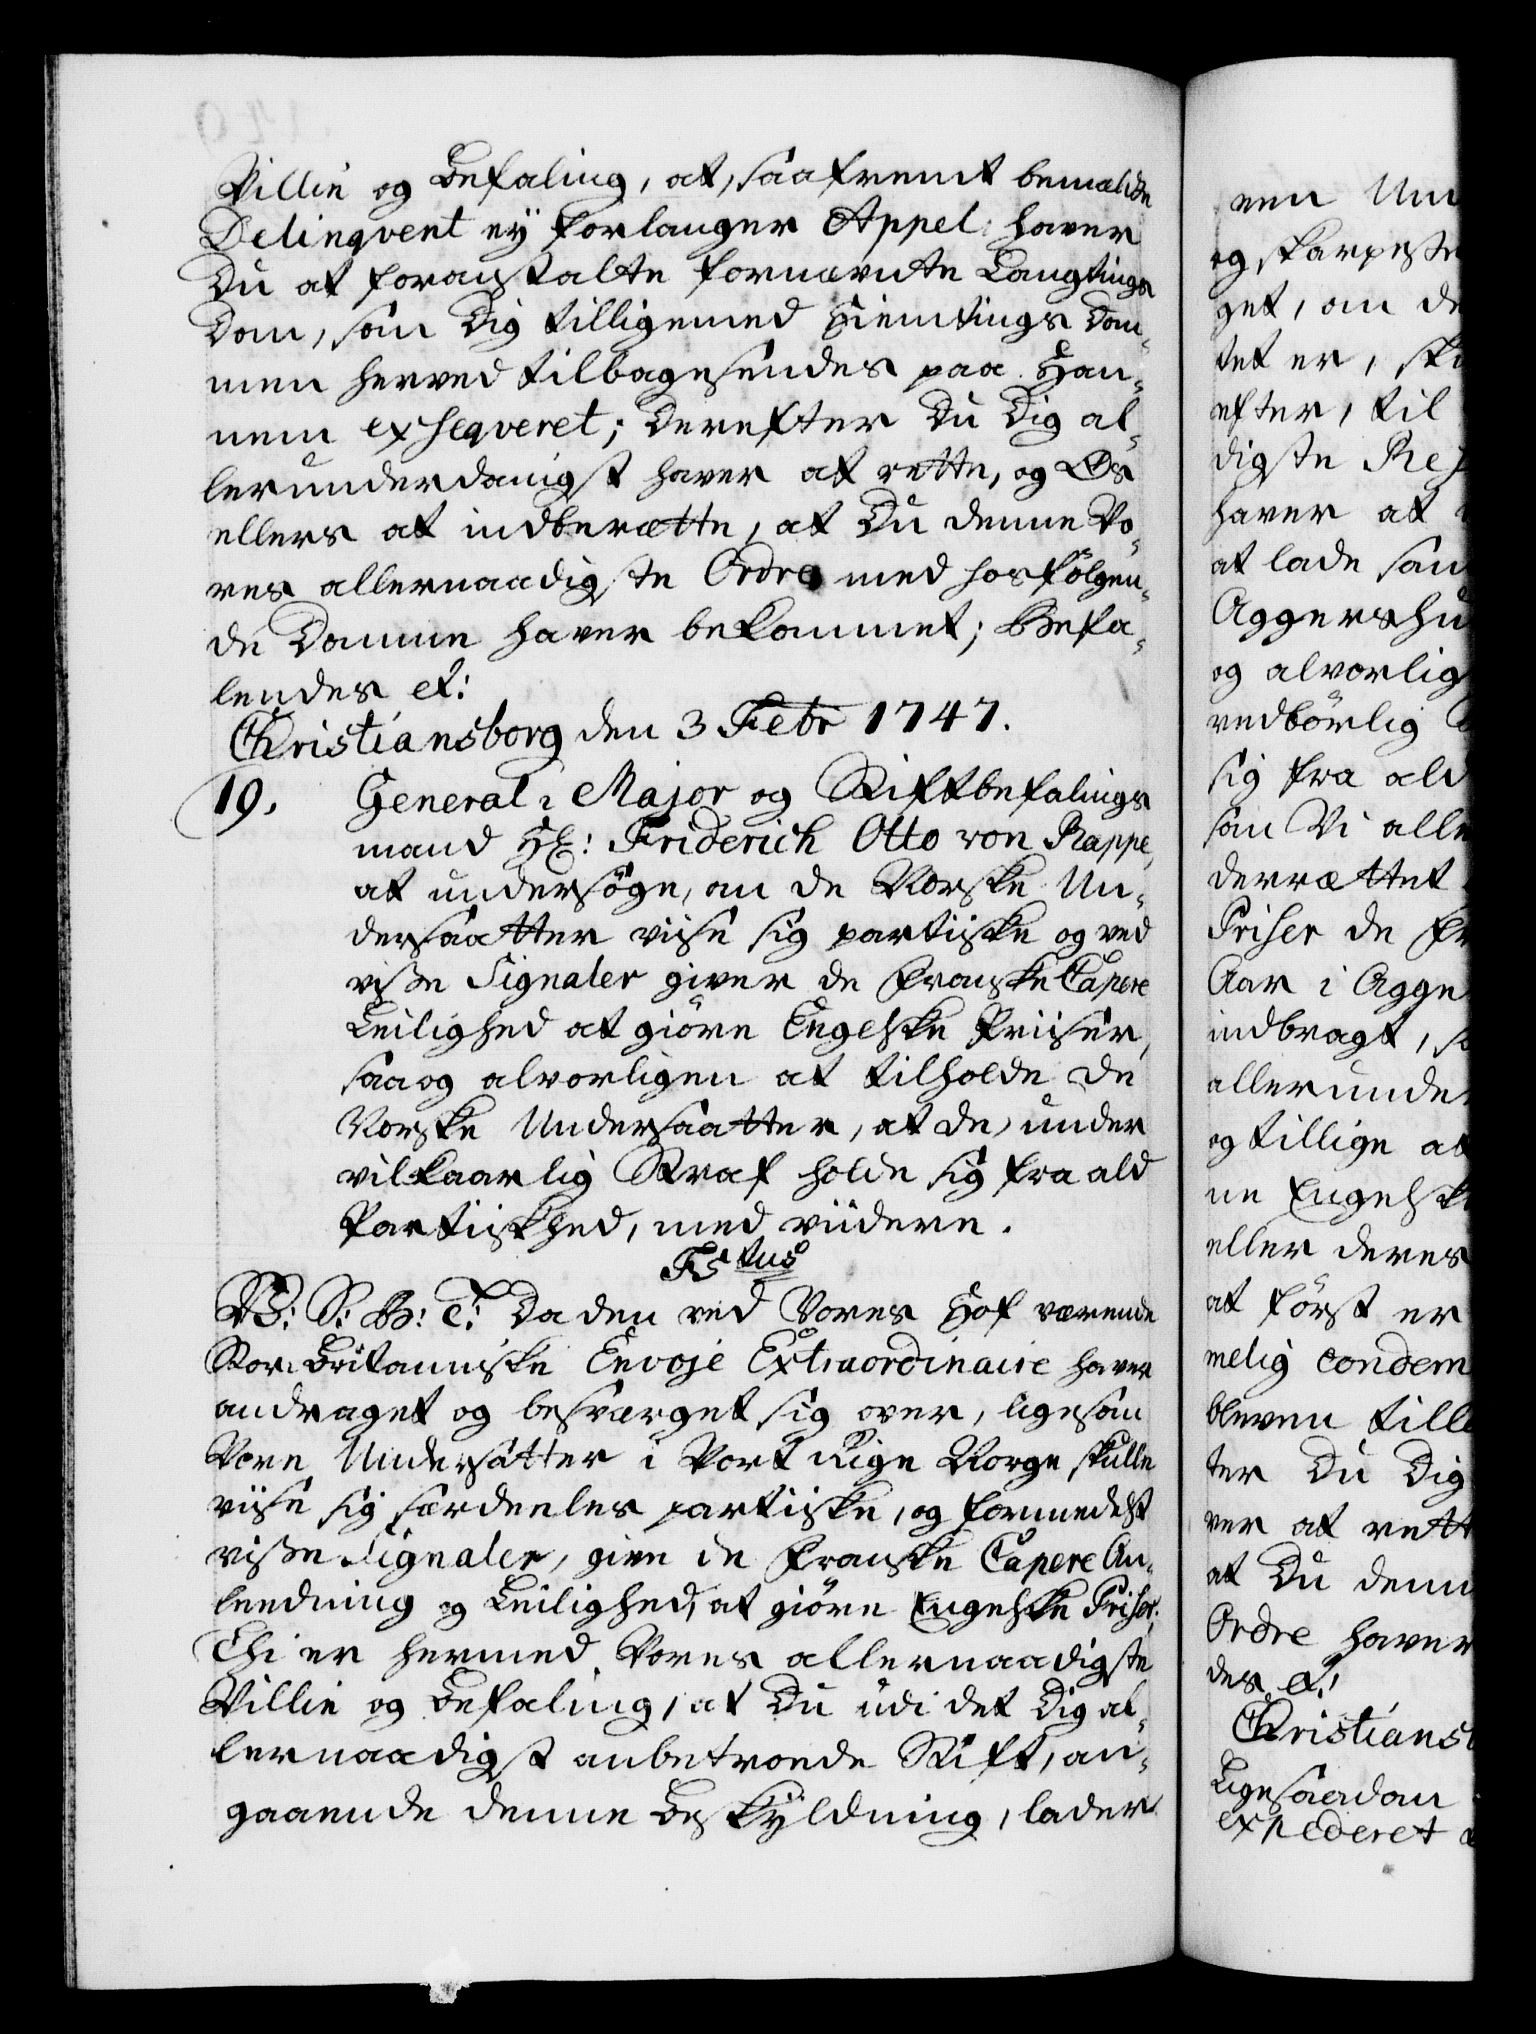 Villie og Befaling, at, saafremt bemælte
Delinqvent ey forlanger Appel, haver
Du at foranstalte fornævnte Laugtings
Dom, som Dig tilligemed Hiemtings Dom-
men herved tilbagesendes paa Han-
nem exseqveret; Derefter Du Dig al-
lerunderdanigst haver at rette, og Os
ellers at indberætte, at Du denne Vo-
res allernaadigste Ordre med hosfølgen-
de Domme haver bekommet; Befa-
lendes et:
Christiansborg den 3 Febr 1747.
19. General-Major og Stiftbefalings
mand Hr: Friderich Otto von Rappe,
at undersøge, om de Norske Un-
dersaatter viise sig partiske og ved
visse Signaler giver de Franske Capere
Leilighed at giøre Engelske Priiser,
saa og alvorligen at tilholde de
Norske Undersaatter, at de, under
vilkaarlig Straf holde sig fra ald
Partiskhed, med viidere.
F5tus
V: S: G: T: Da den ved Vores Hof værende
Stor-Britanniske Envoje Extraordinaire haver
andraget og besværget sig over, ligesom
Vore Undersatter i Vort Rige Norge skulle
viise sig særdeeles partiske, og formedelst
visse Signaler, give de Franske Capere An-
leedning og Leilighed, at giøre Engelske Priser.
Thi er hermed Vores allernaadigste
Villie og Befaling, at Du udi det Dig al-
lernaadigst anbetroede Stift, an-
gaaende denne Beskyldning, lader
ven Un
og skarpeste
get, om de
tet er, ska
efter, til
digste Res
haver at
at lade sam
Aggershu
og alvorlig
vedbørlig
sig fra ald
som Vi alle
derrættet
Priser de Fr
Aar i Agge
indbragt, s
allerunder
og tillige at
ne Engelsk
eller deres
at først er
melig condem
bleven till
ter Du Dig
ver at rett
at Du denn
Ordre haver
des et:
Christiansb
Ligesaadan
expederet